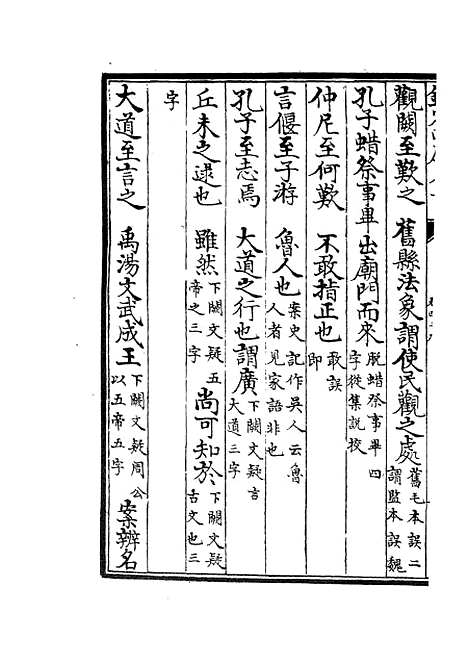 觀闕至歎之　舊縣法象謂使民觀之處舊毛本誤二謂監本誤魏
孔子蜡祭事畢出廟門而來脫蜡祭事畢四字從集說挍
仲尼至何歎　不敢指正也敢誤即
言偃至子游　魯人也案史記作吳人云魯人者見家語非也
孔子至志焉　大道之行也謂廣下闕文疑言大道三字
丘未之逮也　雖然下闕文疑五帝之三字尚可知於下闕文疑古文也三
字
大道至言之　禹湯文武成王下闕文疑周公以五帝五字案辨名